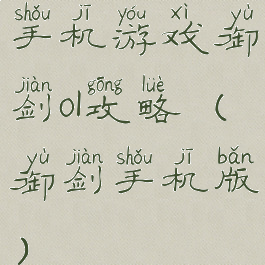 shǒu jī yóu xì yù
手机游戏御
jiàn gōng lüè
剑01攻略（
yù jiàn shǒu jī bǎn
御剑手机版
）